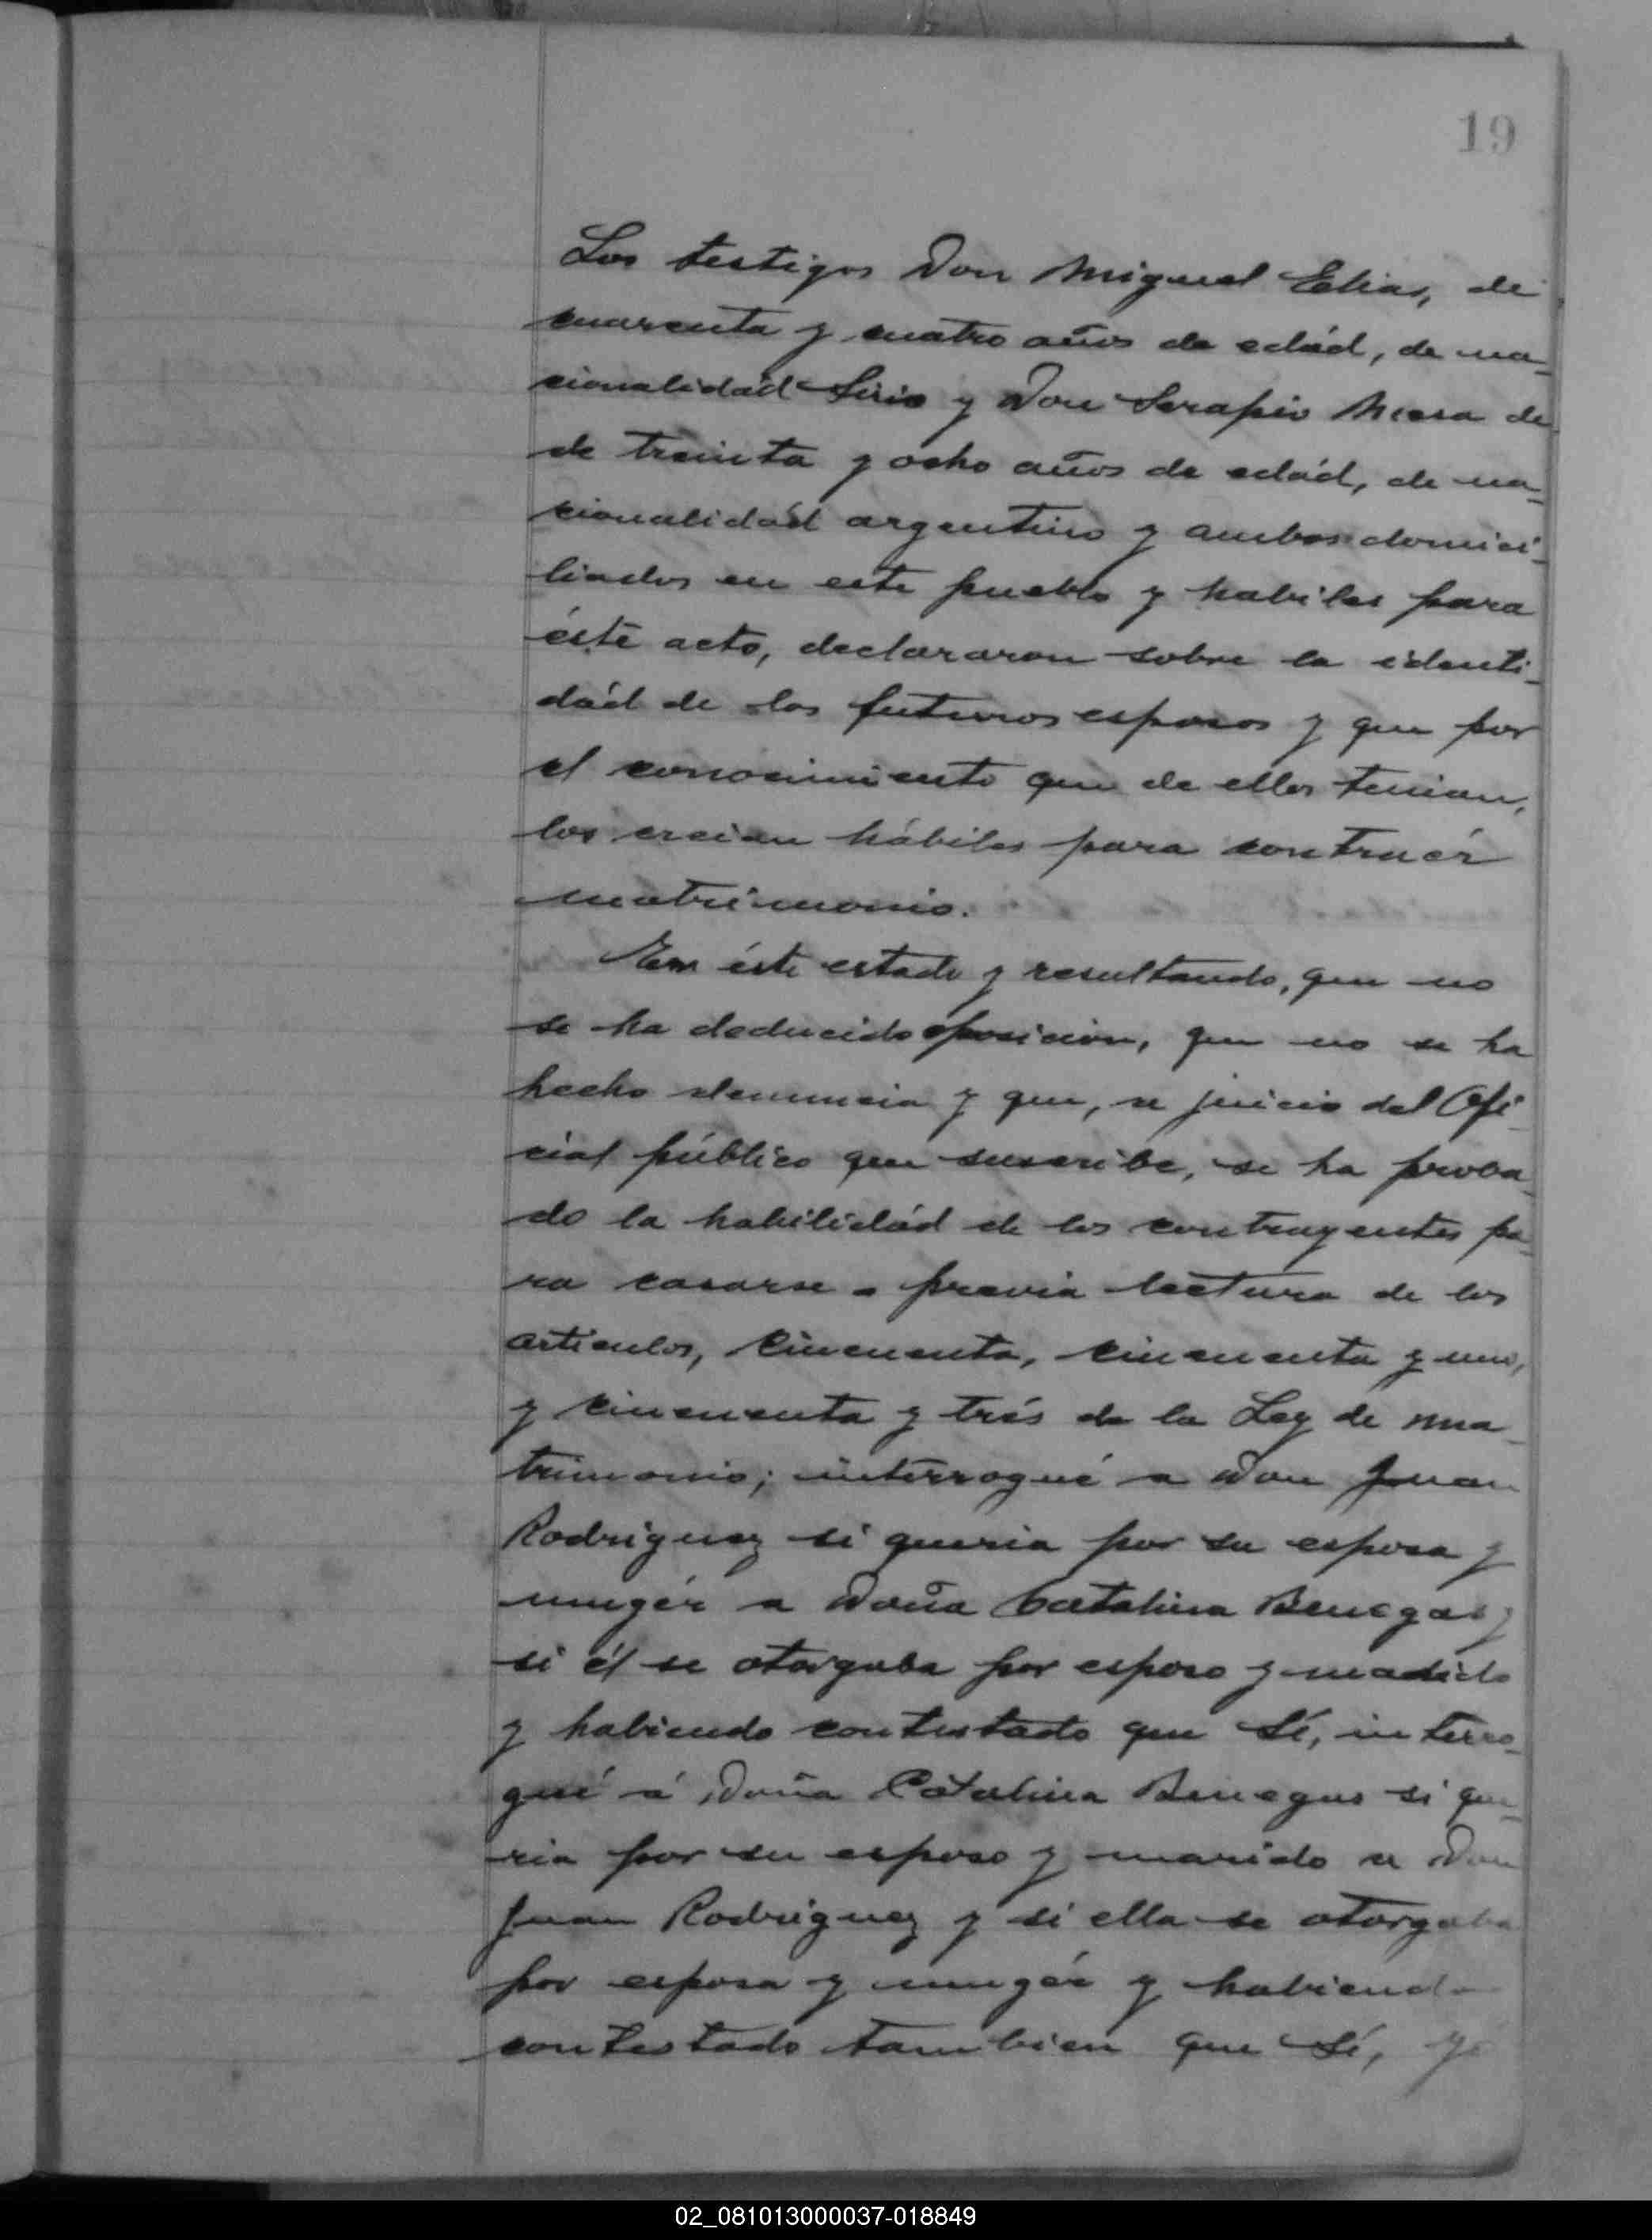 19
Los testigos Don Miguel Elias, de
cuarenta y cuatro años de edád, de na_
cionalidád Sirio y Don Serapio Meza de
de treinta y ocho años de edád, de na_
cionalidád argentino y ambos domici_
liados en este pueblo y habiles para
éste acto, declararon sobre la identi_
dád de los futuros esposos y que por
el conocimiento que de ellos tenian,
los creian hábiles para contraér
matrimonio.
En éste estado y resultando, que no
se ha deducido oposicion, que no se ha
hecho denuncia y que, a juicio del Ofi_
cial público que suscribe, se ha proba_
do la habilidád de los contrayentes pa_
ra casarse - previa lectura de los
articulos, cincuenta, cincuenta y uno,
y cincuenta y trés de la Ley de ma_
trimonio; interrogué a Don Juan
Rodriguez si queria por su esposa y
mugér a Doña Catalina Benegas y
si él se otorgaba por esposo y marido
y habiendo contestado que Sí, interro_
gué á Doña Catalina Benegas si que_
ria por su esposo y marido a Don
Juan Rodriguez y si ella se otorgaba
por esposa y mugér y habiendo
contestado tambien que Sí, yo
02_081013000037-018849